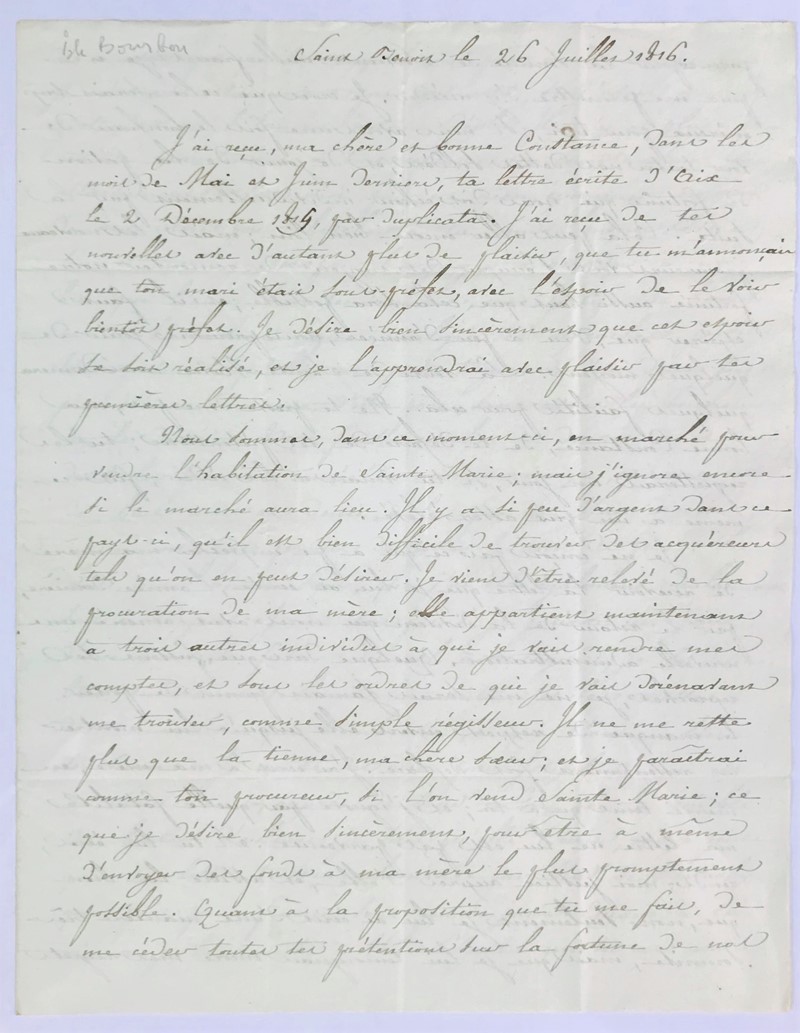 isle Bourbon
Saint Benoit le 26 Juillet 1816.
J'ai reçu, ma chère et bonne Constance, dans les
mois de Mai et Juin derniers, ta lettre écrite d'Aix
le 2 Décembre 1815, par duplicata. J'ai reçu de tes
nouvelles avec d'autant plus de plaisir, que tu m'annonçais
que ton mari était sous-préfet, avec l'espoir de le voir
bientôt préfet. Je désire bien sincèrement que cet espoir
se soit réalisé, et je l'apprendrai avec plaisir par tes
premières lettres.
Nous sommes, dans ce moment-ci, en marché pour
vendre l'habitation de Sainte Marie; mais j'ignore encore
si le marché aura lieu. Il y a si peu d'argent dans ce
pays-ci, qu'il est bien difficile de trouver des acquéreurs
tels qu'on en peut désirer. Je viens d'être relevé de la
procuration de ma mère; elle appartient maintenant
à trois autres individus à qui je vais rendre mes
comptes, et sous les ordres de qui je vais dorénavant
me trouver, comme simple régisseur. Il ne me reste
plus que la tienne, ma chère sœur; et je paraîtrai
comme ton procureur, si l'on vend Sainte Marie; ce
que je désire bien sincèrement, pour être à même
d'envoyer des fonds à ma mère le plus promptement
possible. Quant à la proposition que tu me fais, de
me céder toutes tes prétentions sur la fortune de nos